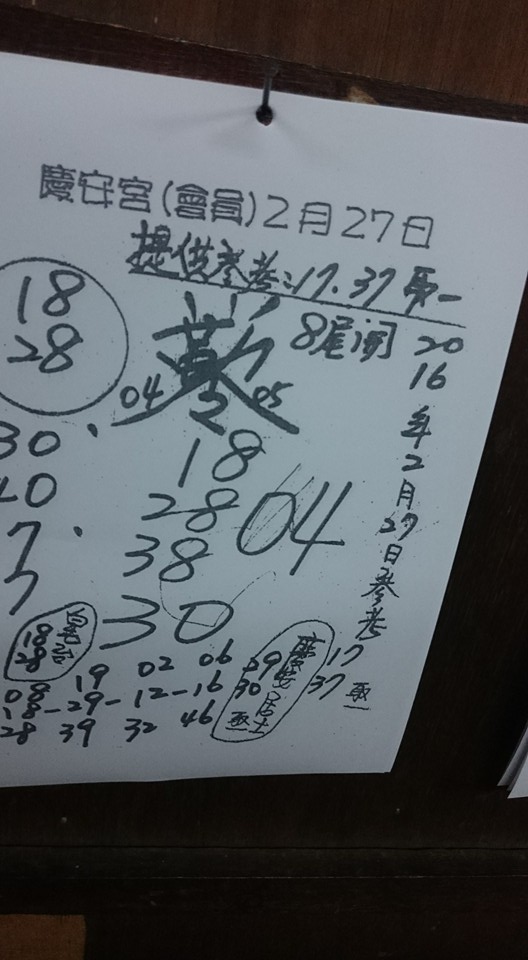 慶安宮(會員)2月27日
提供參考:17.37 取一
8尾開
18
28
04 05
2016年2月27日參考
18
28
38
04
30
30、
40
7、
7
自動
18
28
08 19 02 06
18-29-12-16
28 39 32 46
29
30
慶安居士
取一
17
37 取一